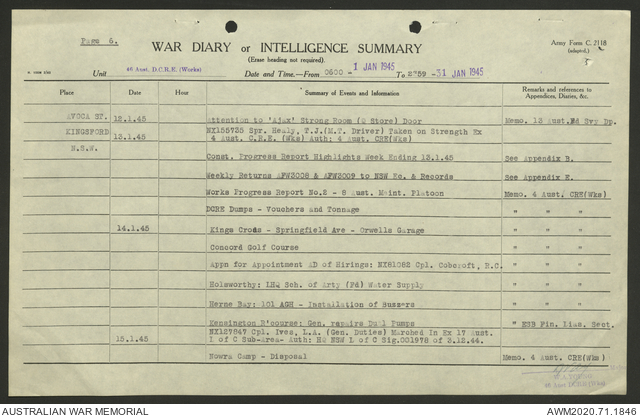 Page 6.
WAR DIARY or INTELLIGENCE SUMMARY
Army Form C. 2118
(adapted.)
(Erase heading not required).
Unit 46 Aust. D.C.R.E. (Works)
Date and Time.—From 0600 - 1 JAN 1945 To 2359 - 31 JAN 1945
Place Date Hour Summary of Events and Information Remarks and references to Appendices, Diaries, &c.
AVOCA ST. 12.1.45 Attention to 'Ajax' Strong Room (Q Store) Door Memo. 13 Aust. Fd Svy Dp.
KINGSFORD 13.1.45 NX155735 Spr. Healy, T.J.(M.T. Driver) Taken on Strength Ex
4 Aust. C.R.E. (Wks) Auth: 4 Aust. CRE(Wks)
N.S.W.
Const. Progress Report Highlights Week Ending 13.1.45 See Appendix B.
Weekly Returns AFW3008 & AFW3009 to NSW Ec. & Records See Appendix E.
Works Progress Report No.2 - 8 Aust. Maint. Platoon Memo. 4 Aust. CRE(Wks)
DCRE Dumps - Vouchers and Tonnage " " "
14.1.45 Kings Cross - Springfield Ave - Orwells Garage " " "
Concord Golf Course " " "
Appn for Appointment AD of Hirings: NX81082 Cpl. Cobcroft, R.C. " " "
Holsworthy: LHQ Sch. of Arty (Fd) Water Supply " " "
Herne Bay: 101 AGH - Installation of Buzzers " " "
Kensington R'course: Gen. repairs Dual Pumps " ESB Pln. Lias. Sect.
15.1.45 NX127847 Cpl. Ives, L.A. (Gen. Duties) Marched In Ex 17 Aust.
L of C Sub-Area- Auth: HQ NSW L of C Sig.001978 of 3.12.44.
Nowra Camp - Disposal Memo. 4 Aust. CRE(Wks)
AUSTRALIAN WAR MEMORIAL
AWM2020.71.1846